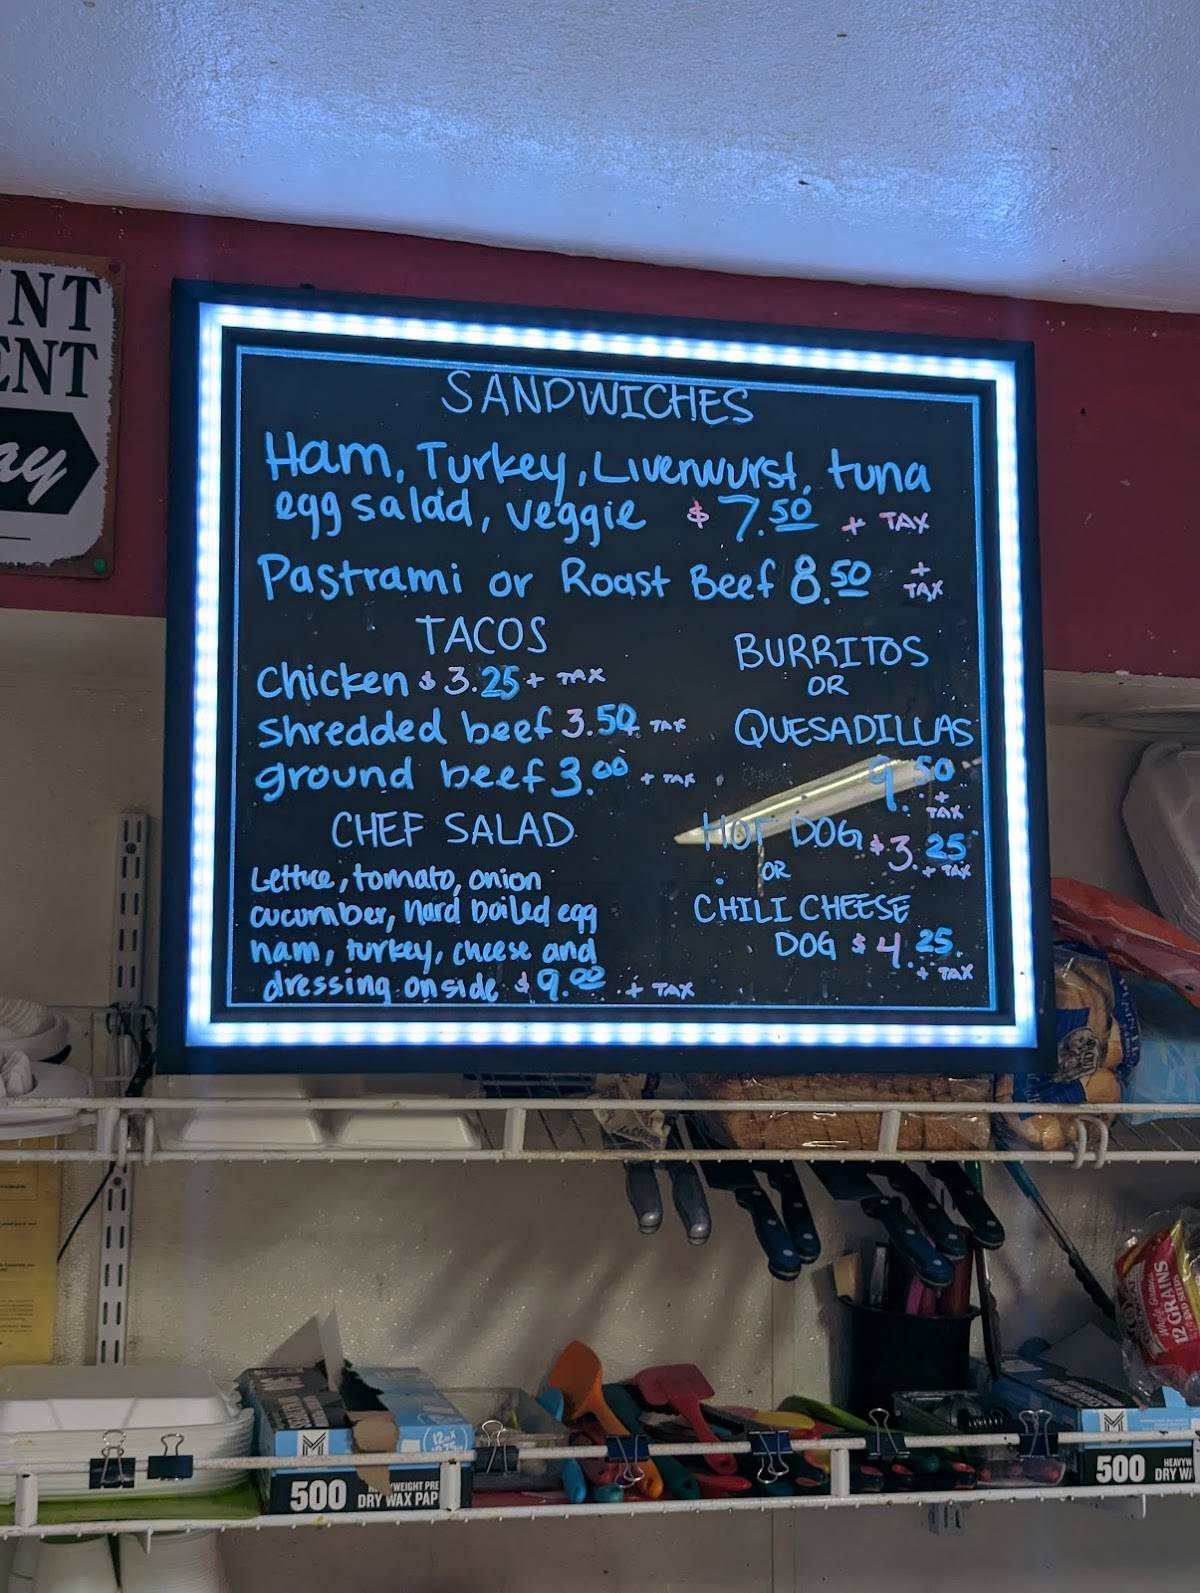 NT
ENT
ay
SANDWICHES
Ham, Turkey, Liverwurst, tuna
egg salad, veggie $7.50 + TAX
Pastrami or Roast Beef 8.50 + TAX
TACOS
Chicken $3.25 + TAX
Shredded beef 3.50 + TAX
ground beef 3.00 + TAX
CHEF SALAD
Lettuce, tomato, onion
cucumber, hard boiled egg
ham, turkey, cheese and
dressing on side $9.00 + TAX
BURRITOS
OR
QUESADILLAS
9.50
+ TAX
HOT DOG $3.25
+ TAX
OR
CHILI CHEESE
DOG $4.25
+ TAX
Whole Grains
12 GRAINS
AND SEEDS
M
500
DRY WAX PAP
M
500
HEAVYW
DRY WA